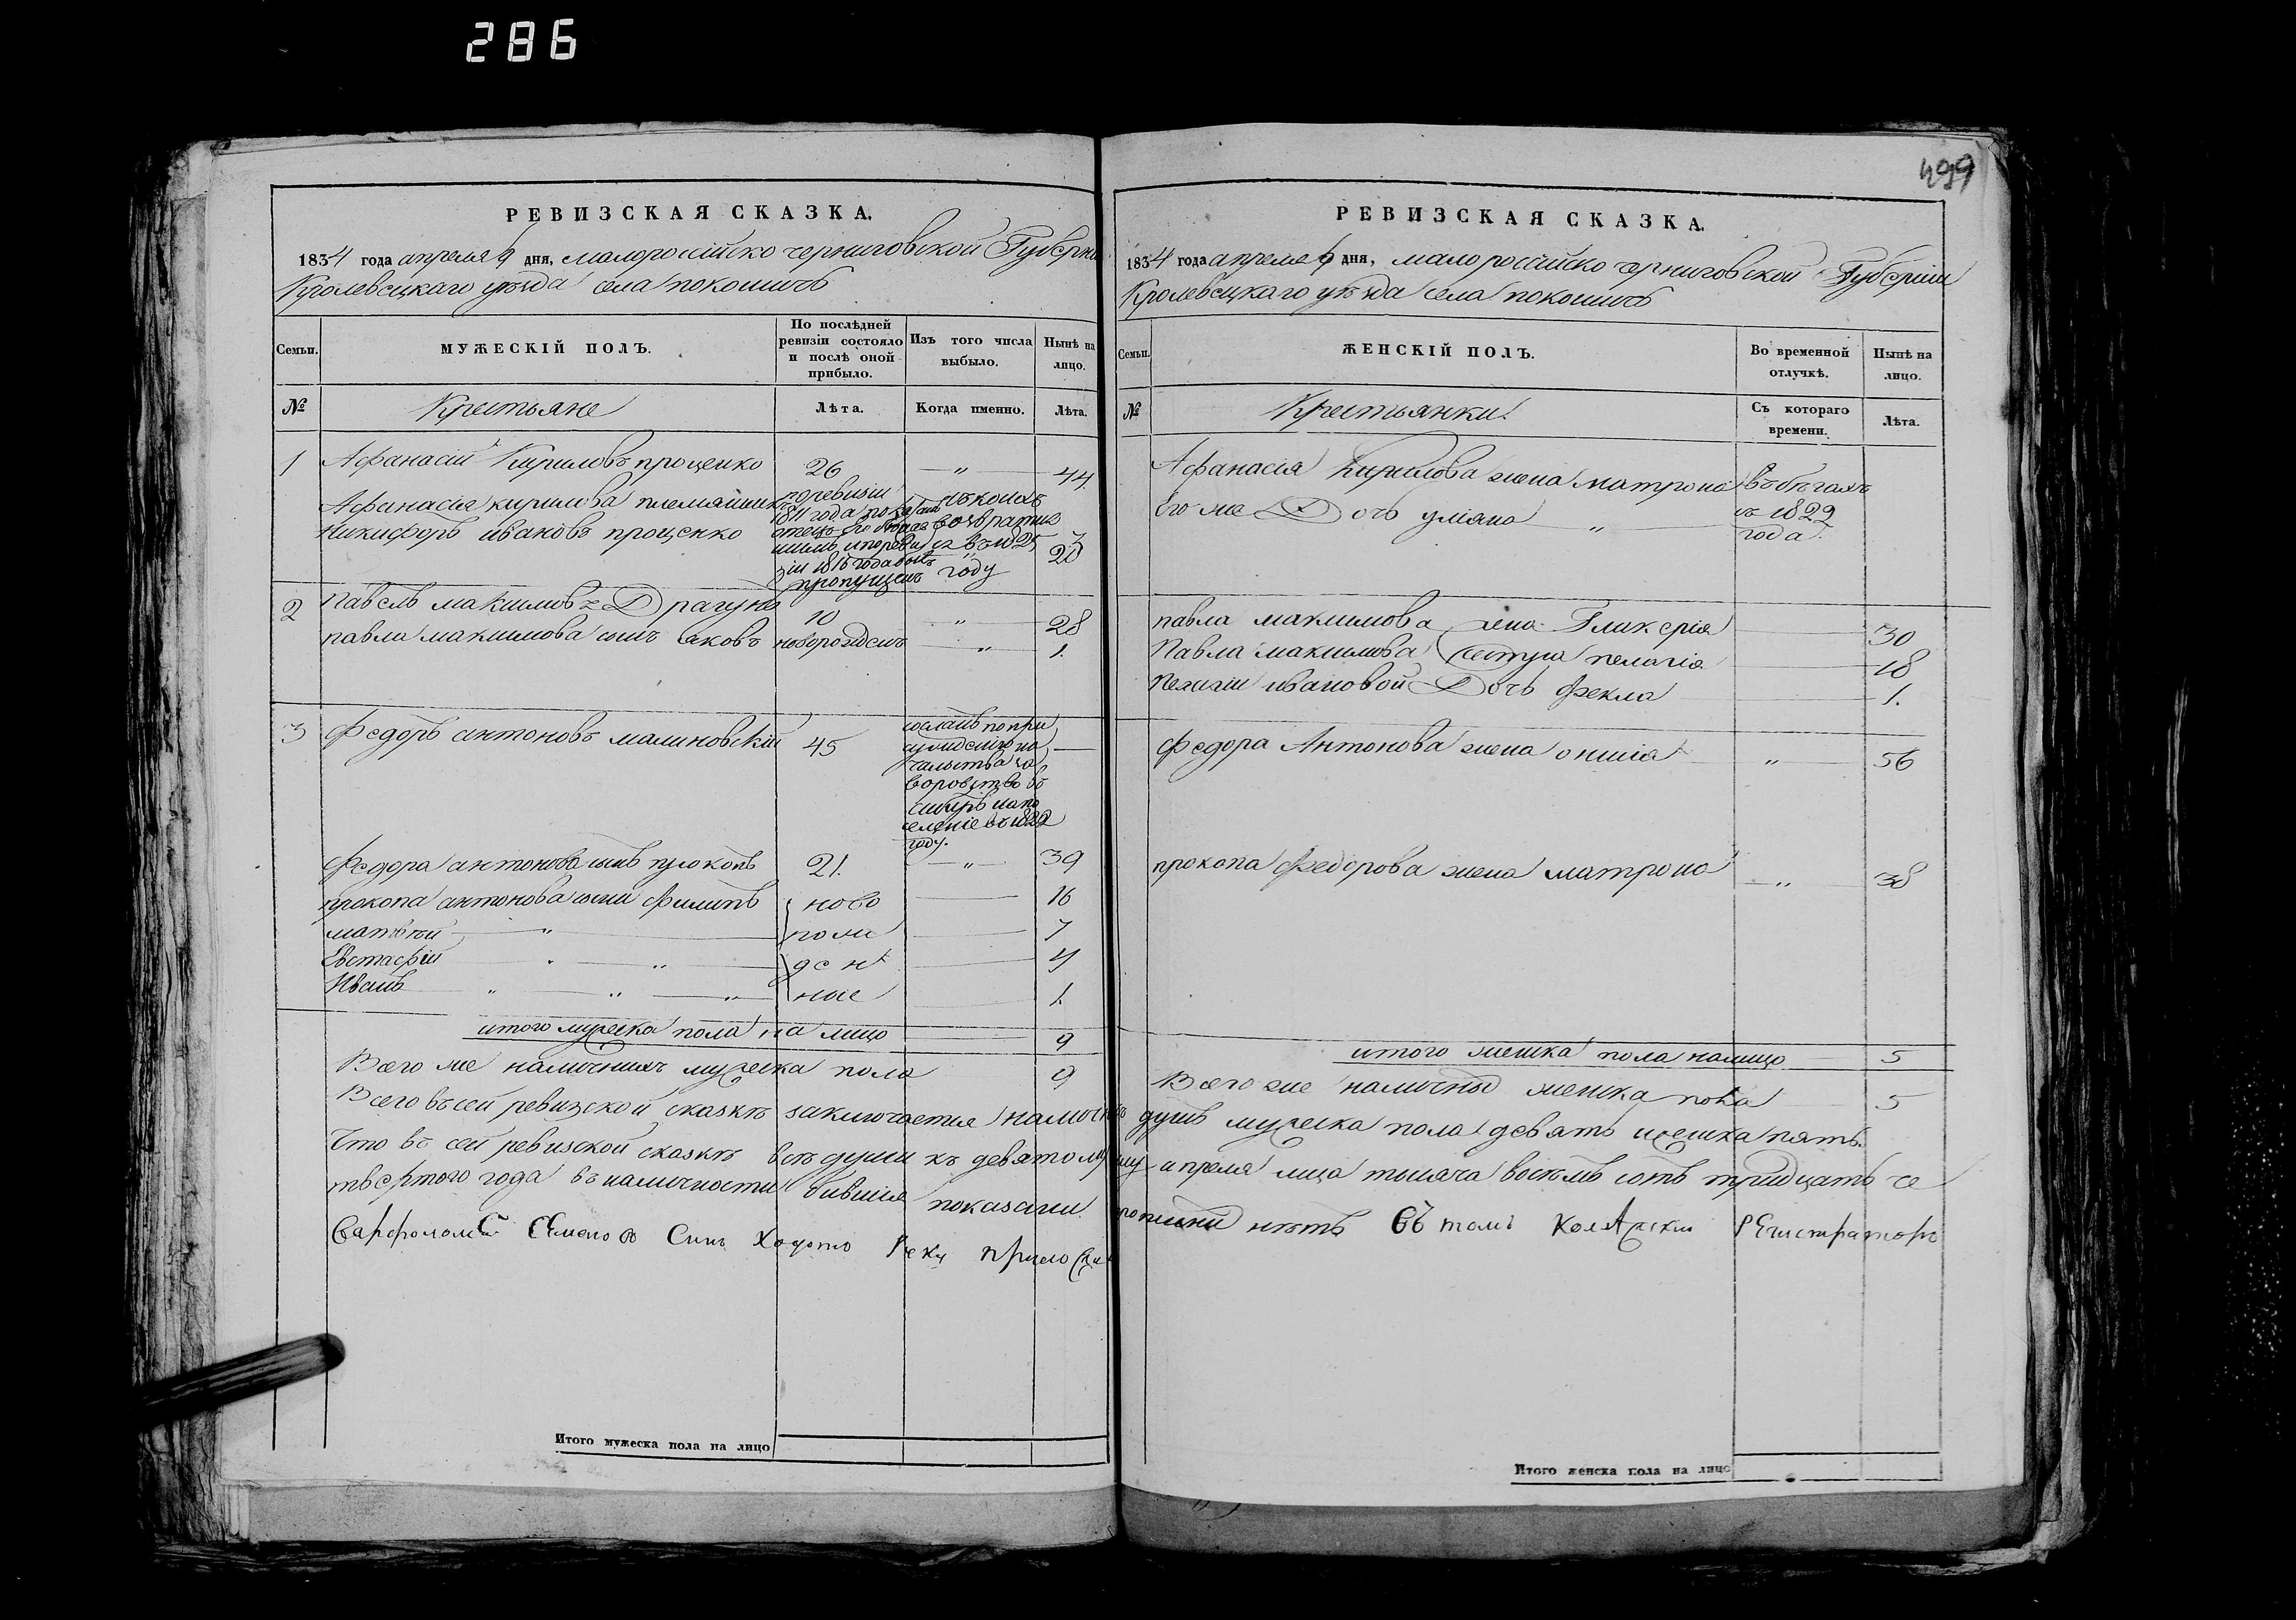 286
499
РЕВИЗСКАЯ СКАЗКА.
1834 года апреля 9 дня, малороссійско черниговской Губерніи
Кролевецкаго уѣзда села покошичъ
Семьи.
МУЖЕСКІЙ ПОЛЪ.
По послѣдней ревизіи состояло и послѣ оной прибыло.
Изъ того числа выбыло.
Нынѣ на лицо.
№
Крестьяне
Лѣта.
Когда именно.
Лѣта.
1 Афанасій Кириловъ проценко 26 — " — 44
Афанасія кирилова племянникъ
Никифоръ ивановъ проценко
20
по ревизіи
1811 года показанъ
отецъ его
и по реви
зіи 1816 года былъ
пропущенъ
возвратил
ся въ 1825
году
2 павелъ максимовъ Драгунъ 10 " 28
павла максимова сынъ яковъ новорожденъ " 1.
3 Федоръ антоновъ малиновскій 45
сосланъ по при
сужденію на
чальства за
воровство въ
сибирь на по
селеніе въ 1822
году.
Федора антонова сынъ прокопъ 21. — " — 39
прокопа антонова сыни филипъ ново 16
матвѣй " рож 7
Евстафій " " ден 4
Иванъ " " " ные 1.
итого мужеска пола на лицо 9
Всего же наличныхъ мужеска пола 9
Всего въ сей ревизской сказкѣ заключается наличныхъ
Что въ сей ревизской сказкѣ всѣ души къ девятому
твертого года въ наличности бившія показани
Варфоломей Семенов Синъ руку приложи
Итого мужеска пола на лицо
РЕВИЗСКАЯ СКАЗКА.
1834 года апреля 9 дня, малороссійско черниговской Губерніи
Кролевецкаго уѣзда села покошичъ
Семьи.
ЖЕНСКІЙ ПОЛЪ.
Во временной отлучкѣ.
Нынѣ на лицо.
№
Крестьянки
Съ котораго времени.
Лѣта.
Афанасія Кирилова жена матрона въ бѣгахъ
Его же Дочь уліяна " съ 1822
года.
павла максимова жена Гликерія 30
Павла максимова сестра пелагія 18
Пелагіи ивановой Дочь Фекла 1.
Федора Антонова жена " 56
прокопа Федорова жена матрона " 38
итого женска пола налицо 5
Всего же наличны женска пола 5
душъ мужеска пола девять женска пять.
апреля мца тысяча восемь сотъ тридцать че
нѣтъ въ томъ Колѣзскии РЕгистраторъ
Итого женска пола на лицо